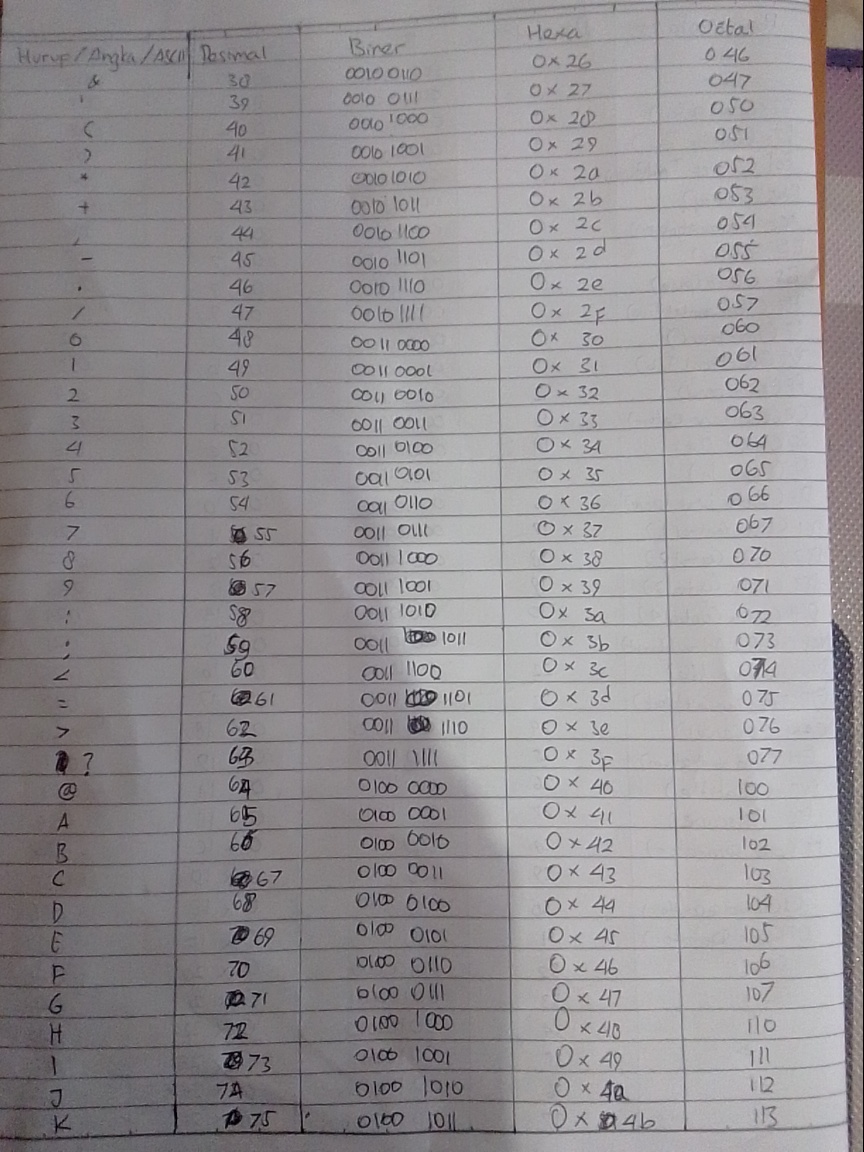 Hurup/Angka/ASCII Desimal Biner Hexa Octal
& 38 0010 0110 0x 26 046
' 39 0010 0111 0x 27 047
( 40 0010 1000 0x 28 050
) 41 0010 1001 0x 29 051
* 42 0010 1010 0x 2a 052
+ 43 0010 1011 0x 2b 053
, 44 0010 1100 0x 2c 054
- 45 0010 1101 0x 2d 055
. 46 0010 1110 0x 2e 056
/ 47 0010 1111 0x 2F 057
0 48 0011 0000 0x 30 060
1 49 0011 0001 0x 31 061
2 50 0011 0010 0x 32 062
3 51 0011 0011 0x 33 063
4 52 0011 0100 0x 34 064
5 53 0011 0101 0x 35 065
6 54 0011 0110 0x 36 066
7 55 0011 0111 0x 37 067
8 56 0011 1000 0x 38 070
9 57 0011 1001 0x 39 071
: 58 0011 1010 0x 3a 072
; 59 0011 1011 0x 3b 073
< 60 0011 1100 0x 3c 074
= 61 0011 1101 0x 3d 075
> 62 0011 1110 0x 3e 076
? 63 0011 1111 0x 3F 077
@ 64 0100 0000 0x 40 100
A 65 0100 0001 0x 41 101
B 66 0100 0010 0x 42 102
C 67 0100 0011 0x 43 103
D 68 0100 0100 0x 44 104
E 69 0100 0101 0x 45 105
F 70 0100 0110 0x 46 106
G 71 0100 0111 0x 47 107
H 72 0100 1000 0x 48 110
I 73 0100 1001 0x 49 111
J 74 0100 1010 0x 4a 112
K 75 0100 1011 0x 4b 113